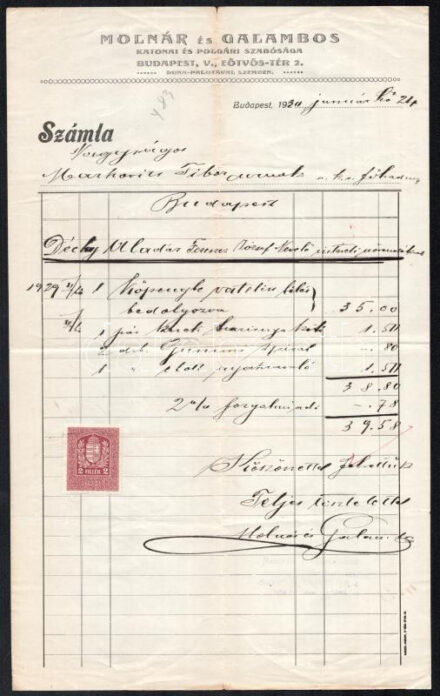 MOLNÁR és GALAMBOS
KATONAI ÉS POLGÁRI SZABÓSÁGA
BUDAPEST, V., EÖTVÖS-TÉR 2.
DUNA-PALOTÁVAL SZEMBEN.
493
Budapest, 1930 január hó 24
Számla
Nagyságos
Markovics Tibor urnak
Budapest
Déchy Uladár Ferenc József Nevelő
1929 1 Köpenybe vatelin
bedolgozva 35.00
1 pár 1.50
2 drb. Gummi .80
1 " 1.50
38.80
2% forgalmi adó -.78
39.58
2 FILLÉR 2
Köszönettel felvettük
Teljes tisztelettel
Molnár és Galambos